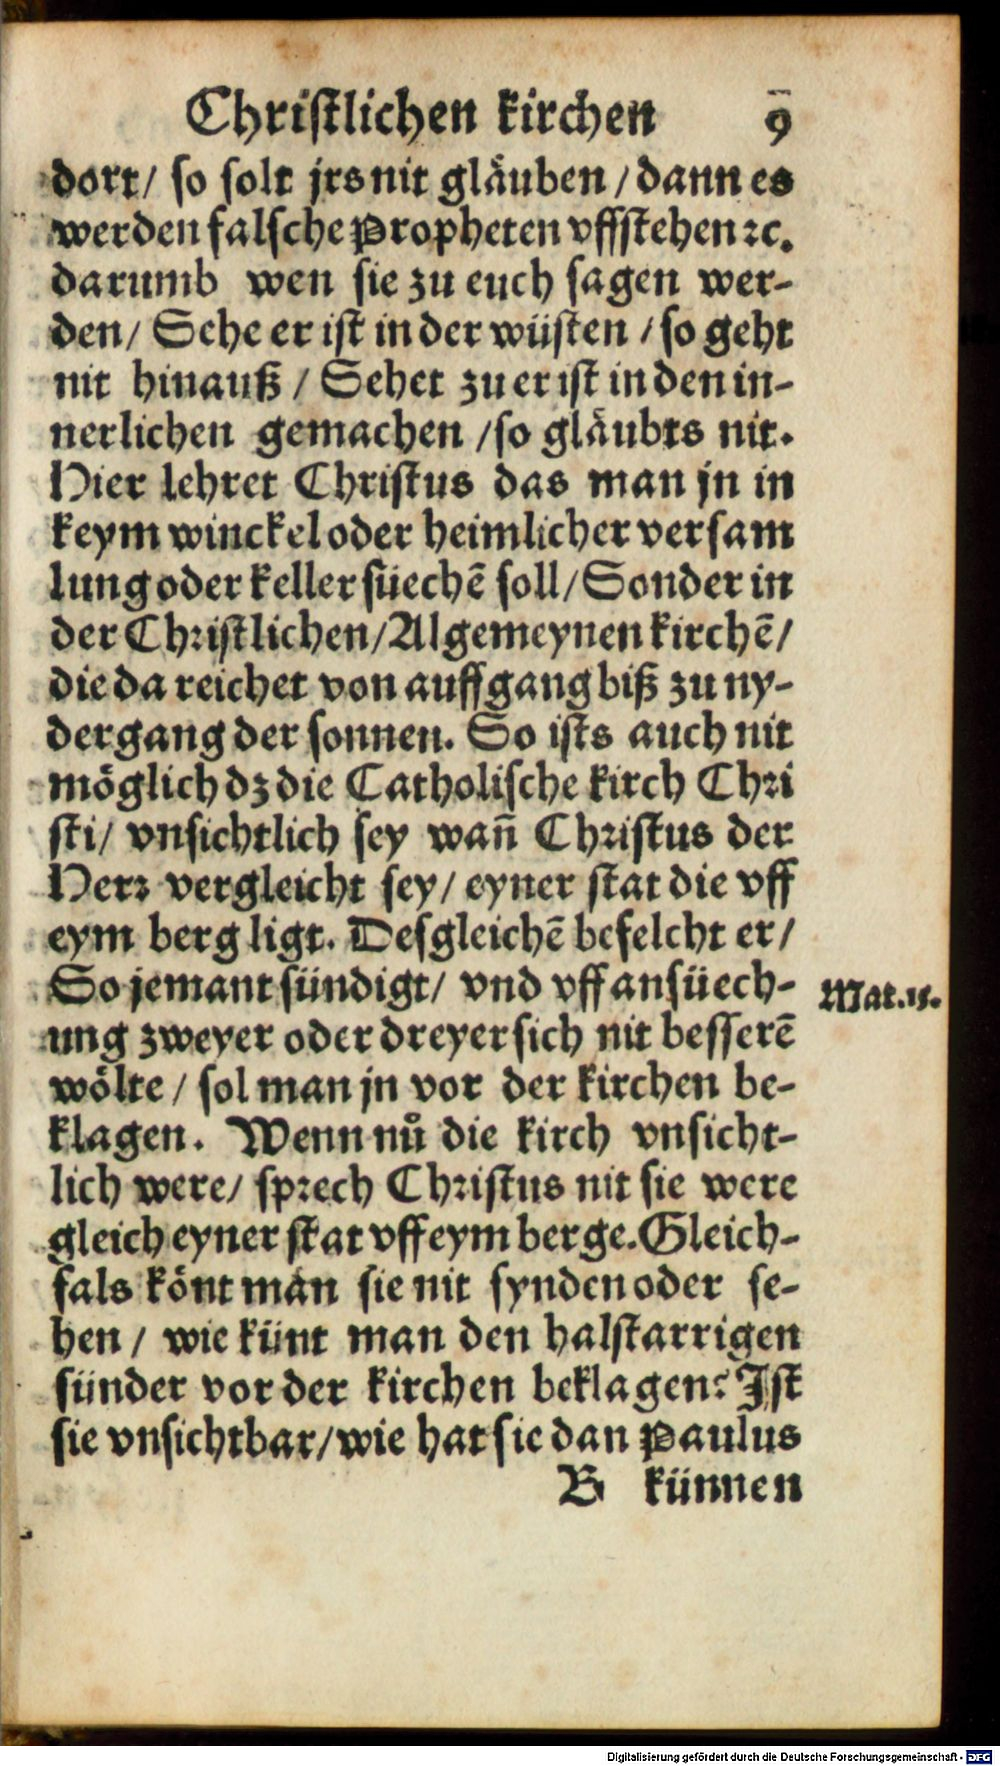 Christlichen kirchen 9
dort/ so solt jrs nit gläuben/ dann es
werden falsche Propheten vffstehen ꝛc.
darumb wen sie zu euch sagen wer-
den/ Sehe er ist in der wüsten/ so geht
nit hinauß/ Sehet zu er ist in den in-
nerlichen gemachen/ so gläubts nit.
Hier lehret Christus das man jn in
keym winckel oder heimlicher versam
lung oder keller süechẽ soll/ Sonder in
der Christlichen/ Algemeynen kirchẽ/
die da reichet von auffgang biß zu ny-
dergang der sonnen. So ists auch nit
möglich dz die Catholische kirch Chri
sti/ vnsichtlich sey wañ Christus der
Herr vergleicht sey/ eyner stat die vff
eym berg ligt. Desgleichẽ befelcht er/
So jemant sündigt/ vnd vff ansüech-
Mat.15.
ung zweyer oder dreyer sich nit besserẽ
wölte/ sol man jn vor der kirchen be-
klagen. Wenn nů die kirch vnsicht-
lich were/ sprech Christus nit sie were
gleich eyner stat vff eym berge. Gleich-
fals könt man sie nit fynden oder se-
hen/ wie künt man den halstarrigen
sünder vor der kirchen beklagen? Ist
sie vnsichtbar/ wie hat sie dan Paulus
B künnen
Digitalisierung gefördert durch die Deutsche Forschungsgemeinschaft - DFG